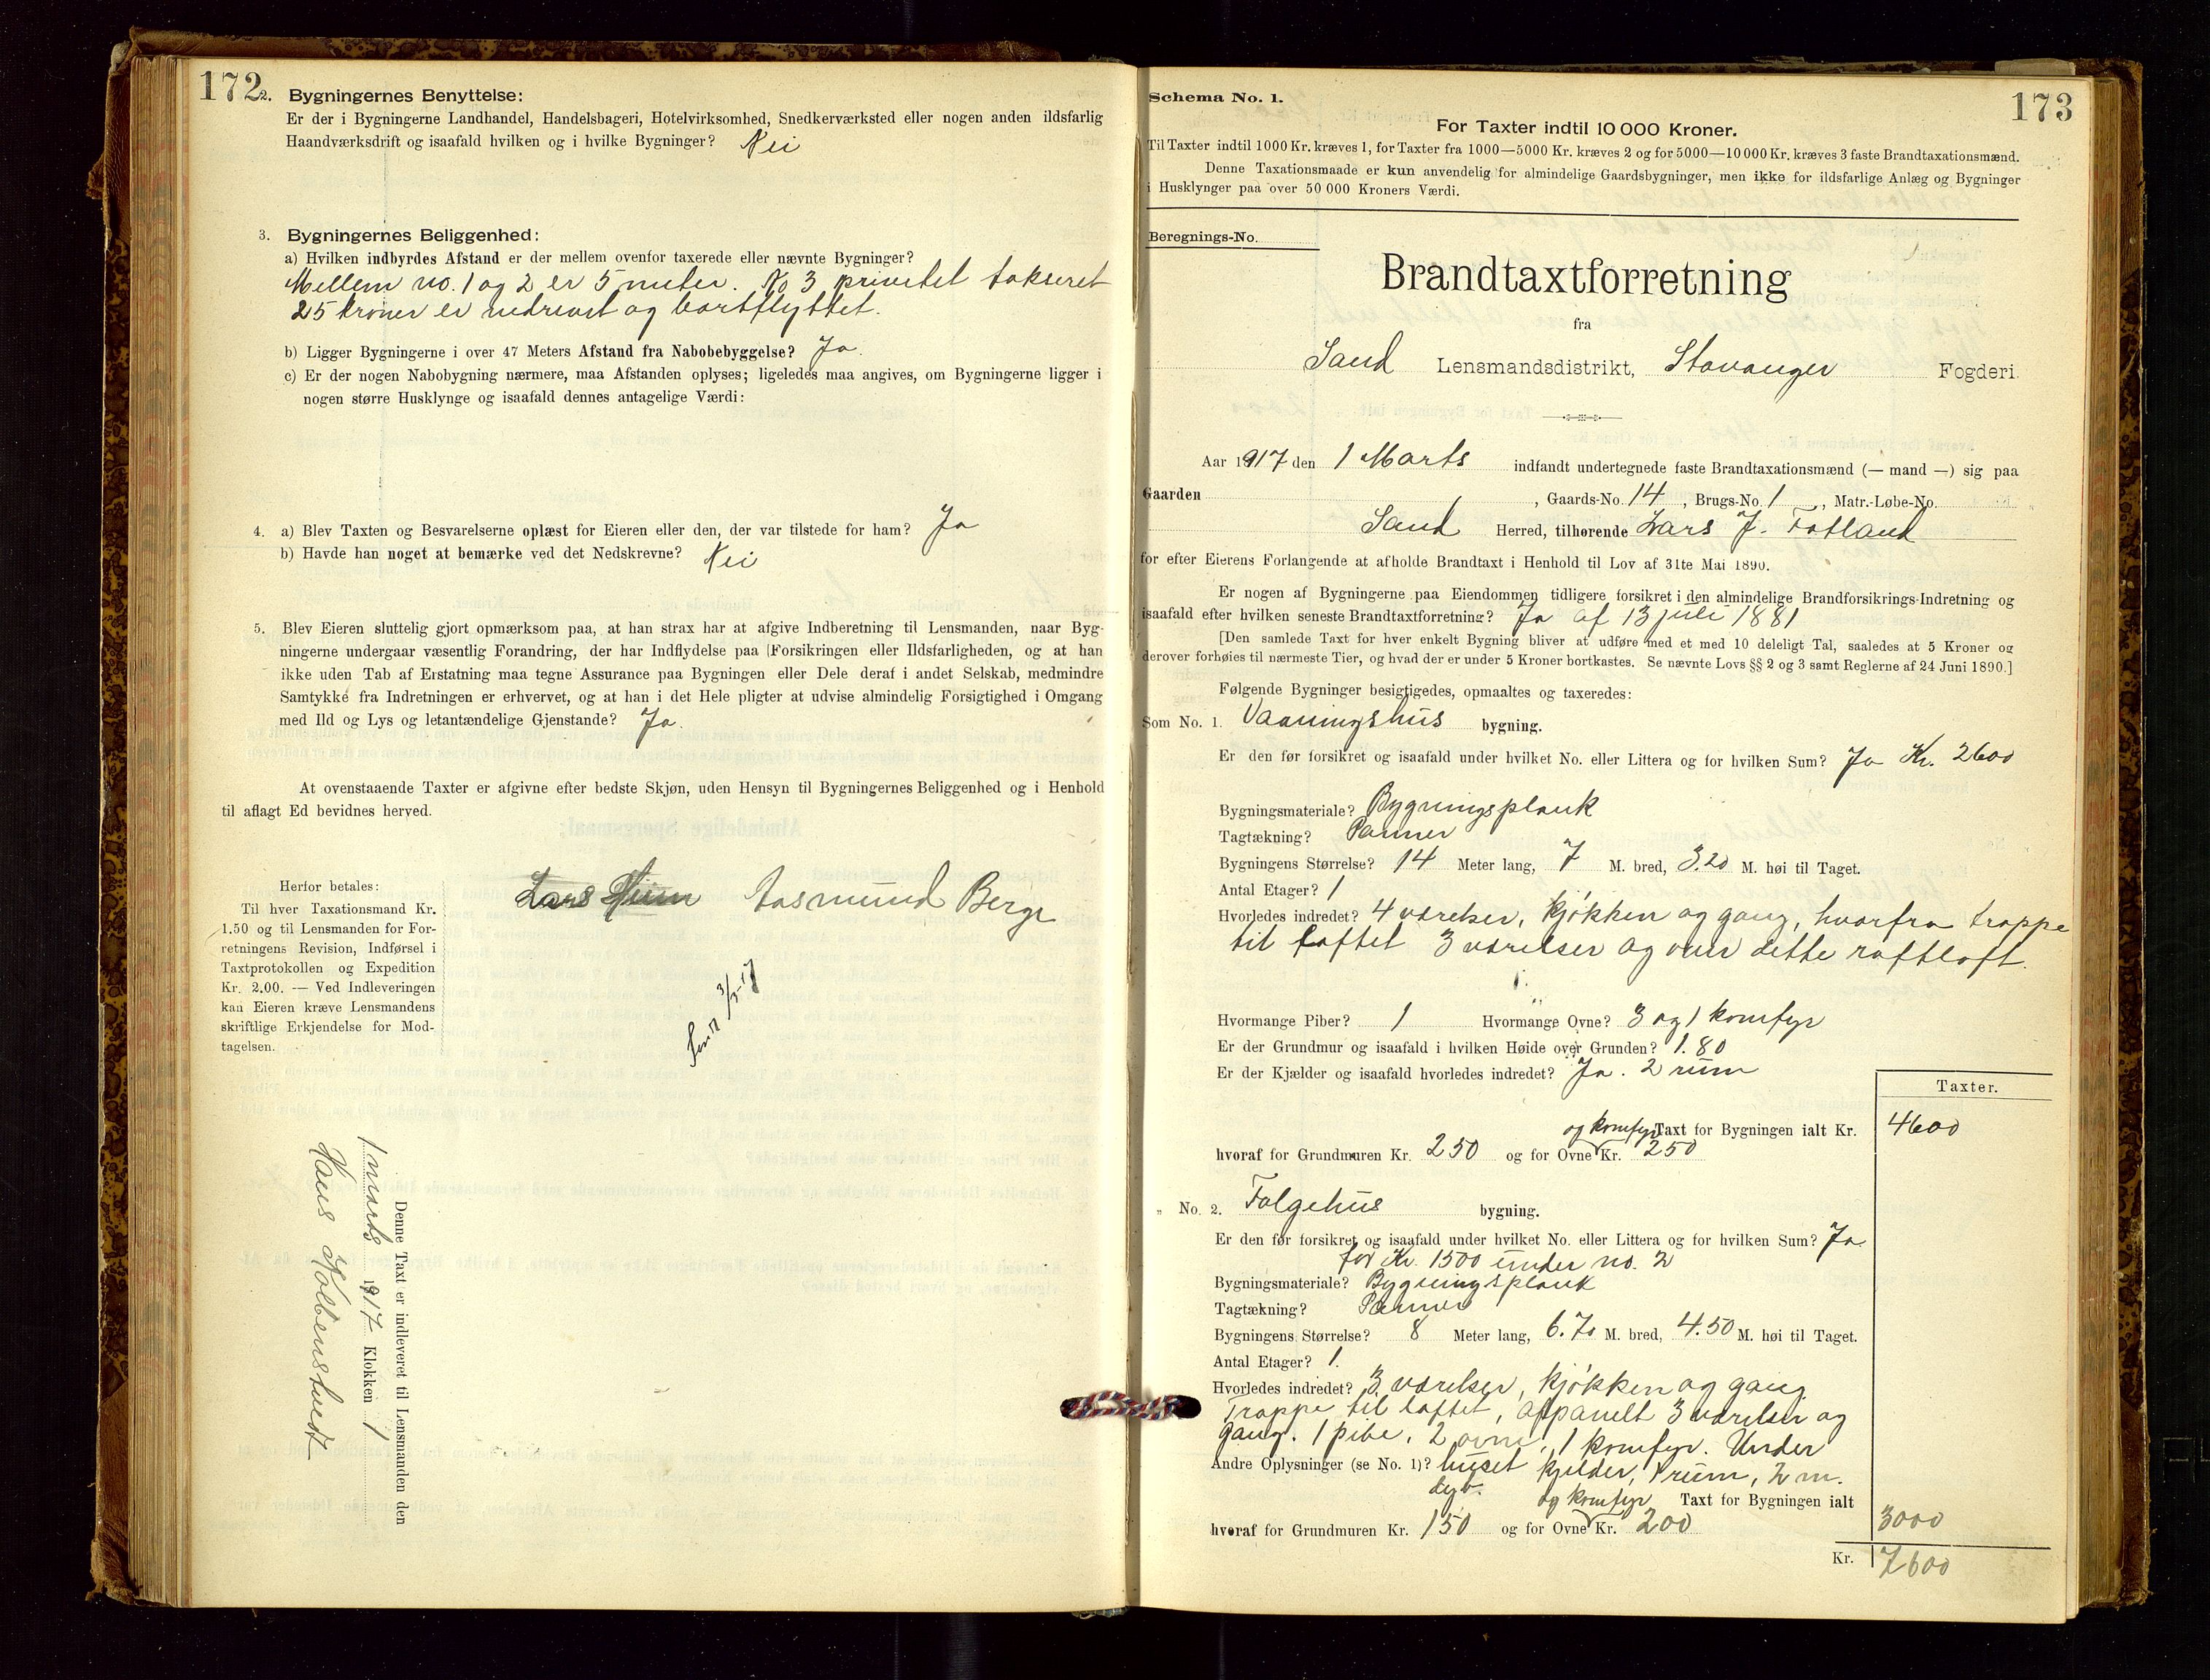 172
2. Bygningernes Benyttelse:
Er der i Bygningerne Landhandel, Handelsbageri, Hotelvirksomhed, Snedkerværksted eller nogen anden ildsfarlig
Haandværksdrift og isaafald hvilken og i hvilke Bygninger? Nei
3. Bygningernes Beliggenhed:
a) Hvilken indbyrdes Afstand er der mellem ovenfor taxerede eller nævnte Bygninger?
Mellem no. 1 og 2 er 5 meter. No 3 privetet takseret
25 kroner er nedrevet og bortflyttet.
b) Ligger Bygningerne i over 47 Meters Afstand fra Nabobebyggelse? Ja.
c) Er der nogen Nabobygning nærmere, maa Afstanden oplyses; ligeledes maa angives, om Bygningerne ligger i
nogen større Husklynge og isaafald dennes antagelige Værdi:
4. a) Blev Taxten og Besvarelserne oplæst for Eieren eller den, der var tilstede for ham? Ja
b) Havde han noget at bemærke ved det Nedskrevne? Nei
5. Blev Eieren sluttelig gjort opmærksom paa, at han strax har at afgive Indberetning til Lensmanden, naar Byg-
ningerne undergaar væsentlig Forandring, der har Indflydelse paa Forsikringen eller Ildsfarligheden, og at han
ikke uden Tab af Erstatning maa tegne Assurance paa Bygningen eller Dele deraf i andet Selskab, medmindre
Samtykke fra Indretningen er erhvervet, og at han i det Hele pligter at udvise almindelig Forsigtighed i Omgang
med Ild og Lys og letantændelige Gjenstande? Ja.
At ovenstaaende Taxter er afgivne efter bedste Skjøn, uden Hensyn til Bygningernes Beliggenhed og i Henhold
til aflagt Ed bevidnes herved.
Lars Heim Aasmund Berge
Herfor betales:
Til hver Taxationsmand Kr.
1.50 og til Lensmanden for For-
retningens Revision, Indførsel i
Taxtprotokollen og Expedition
Kr. 2.00. — Ved Indleveringen
kan Eieren kræve Lensmandens
skriftlige Erkjendelse for Mod-
tagelsen.
Sendt 3/3-17
Denne Taxt er indleveret til Lensmanden den
1 marts 1917 Klokken 1
Hans
173
Schema No. 1.
For Taxter indtil 10 000 Kroner.
Til Taxter indtil 1000 Kr. kræves 1, for Taxter fra 1000—5000 Kr. kræves 2 og for 5000—10 000 Kr. kræves 3 faste Brandtaxationsmænd.
Denne Taxationsmaade er kun anvendelig for almindelige Gaardsbygninger, men ikke for ildsfarlige Anlæg og Bygninger
i Husklynger paa over 50 000 Kroners Værdi.
Beregnings-No.
Brandtaxtforretning
fra
Sand Lensmandsdistrikt, Stavanger Fogderi
Aar 1917 den 1 Marts indfandt undertegnede faste Brandtaxationsmænd (— mand —) sig paa
Gaarden , Gaards-No. 14, Brugs-No. 1, Matr.-Løbe-No.
Sand Herred, tilhørende Lars J. Fatland
for efter Eierens Forlangende at afholde Brandtaxt i Henhold til Lov af 31te Mai 1890.
Er nogen af Bygningerne paa Eiendommen tidligere forsikret i den almindelige Brandforsikrings-Indretning og
isaafald efter hvilken seneste Brandtaxtforretning? Ja af 13 juli 1881
[Den samlede Taxt for hver enkelt Bygning bliver at udføre med et med 10 deleligt Tal, saaledes at 5 Kroner og
derover forhøies til nærmeste Tier, og hvad der er under 5 Kroner bortkastes. Se nævnte Lovs §§ 2 og 3 samt Reglerne af 24 Juni 1890.]
Følgende Bygninger besigtigedes, opmaaltes og taxeredes:
Som No. 1. Vaaningshus bygning.
Er den før forsikret og isaafald under hvilket No. eller Littera og for hvilken Sum? Ja Kr. 2600
Bygningsmateriale? Bygningsplank
Tagtækning? Panner
Bygningens Størrelse? 14 Meter lang, 7 M. bred, 3.20 M. høi til Taget.
Antal Etager? 1
Hvorledes indredet? 4 værelser, kjøkken og gang, hvorfra trappe
til loftet 3 værelser og over dette raftloft.
Hvormange Piber? 1 Hvormange Ovne? 3 og 1 komfyr
Er der Grundmur og isaafald i hvilken Høide over Grunden? 1.80
Er der Kjælder og isaafald hvorledes indredet? Ja. 2 rum
Taxter.
og komfyr Taxt for Bygningen ialt Kr. 4600
hvoraf for Grundmuren Kr. 250 og for Ovne Kr. 250
„ No. 2. Følgehus bygning.
Er den før forsikret og isaafald under hvilket No. eller Littera og for hvilken Sum? Ja
for Kr. 1500 under no. 2
Bygningsmateriale? Bygningsplank
Tagtækning? Panner
Bygningens Størrelse? 8 Meter lang, 6.70 M. bred, 4.50 M. høi til Taget.
Antal Etager? 1.
Hvorledes indredet? 3 værelser, kjøkken og gang
Trappe til loftet, afpanelt 3 værelser og
gang. 1 pibe, 2 ovne, 1 komfyr. Under
Andre Oplysninger (se No. 1)? huset kjelder, 1 rum, 2 m.
dyb.
og komfyr Taxt for Bygningen ialt 3000
hvoraf for Grundmuren Kr. 150 og for Ovne Kr. 200
Kr. 7600